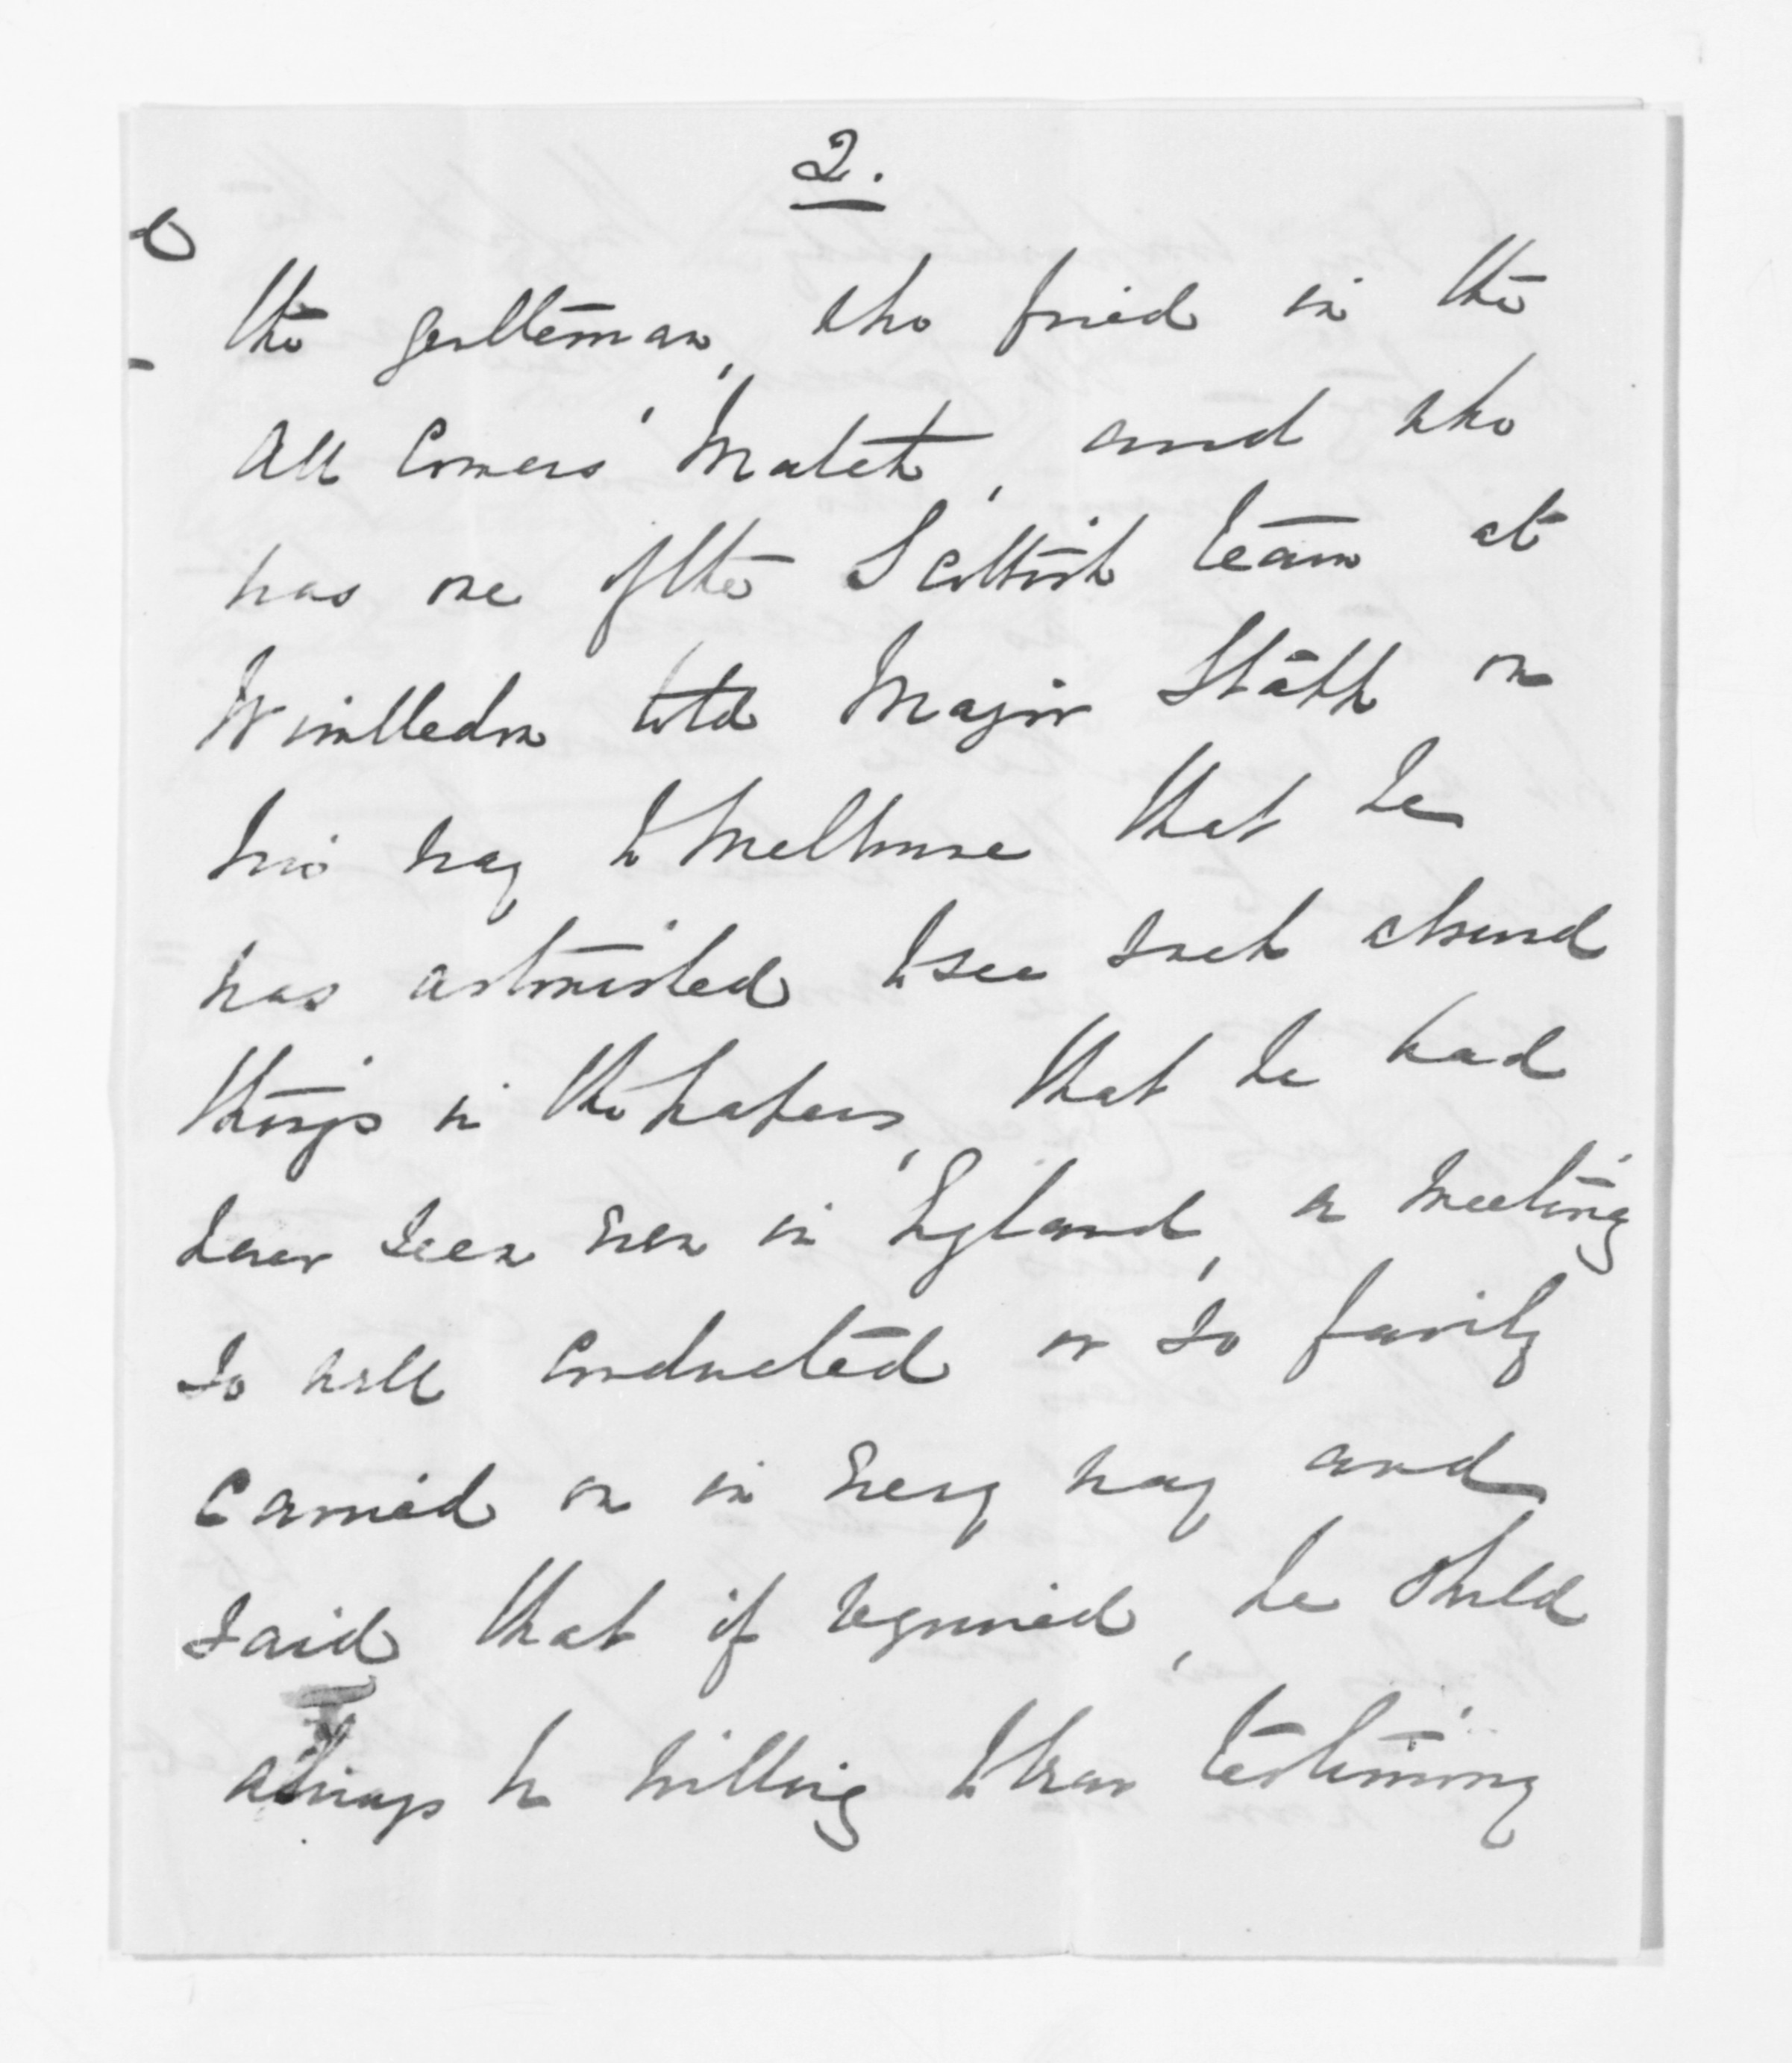 2.
the gentleman, who fired in the
All Comers' Match, and who
was one of the Scottish team at
Wimbledon told Major Stapp on
his way to Melbourne that he
was astonished to see such absurd
things in the papers, that he had
never seen even in England, a meeting
so well conducted or so fairly
carried on in every way and
said that if required, he should
always be willing to bear testimony